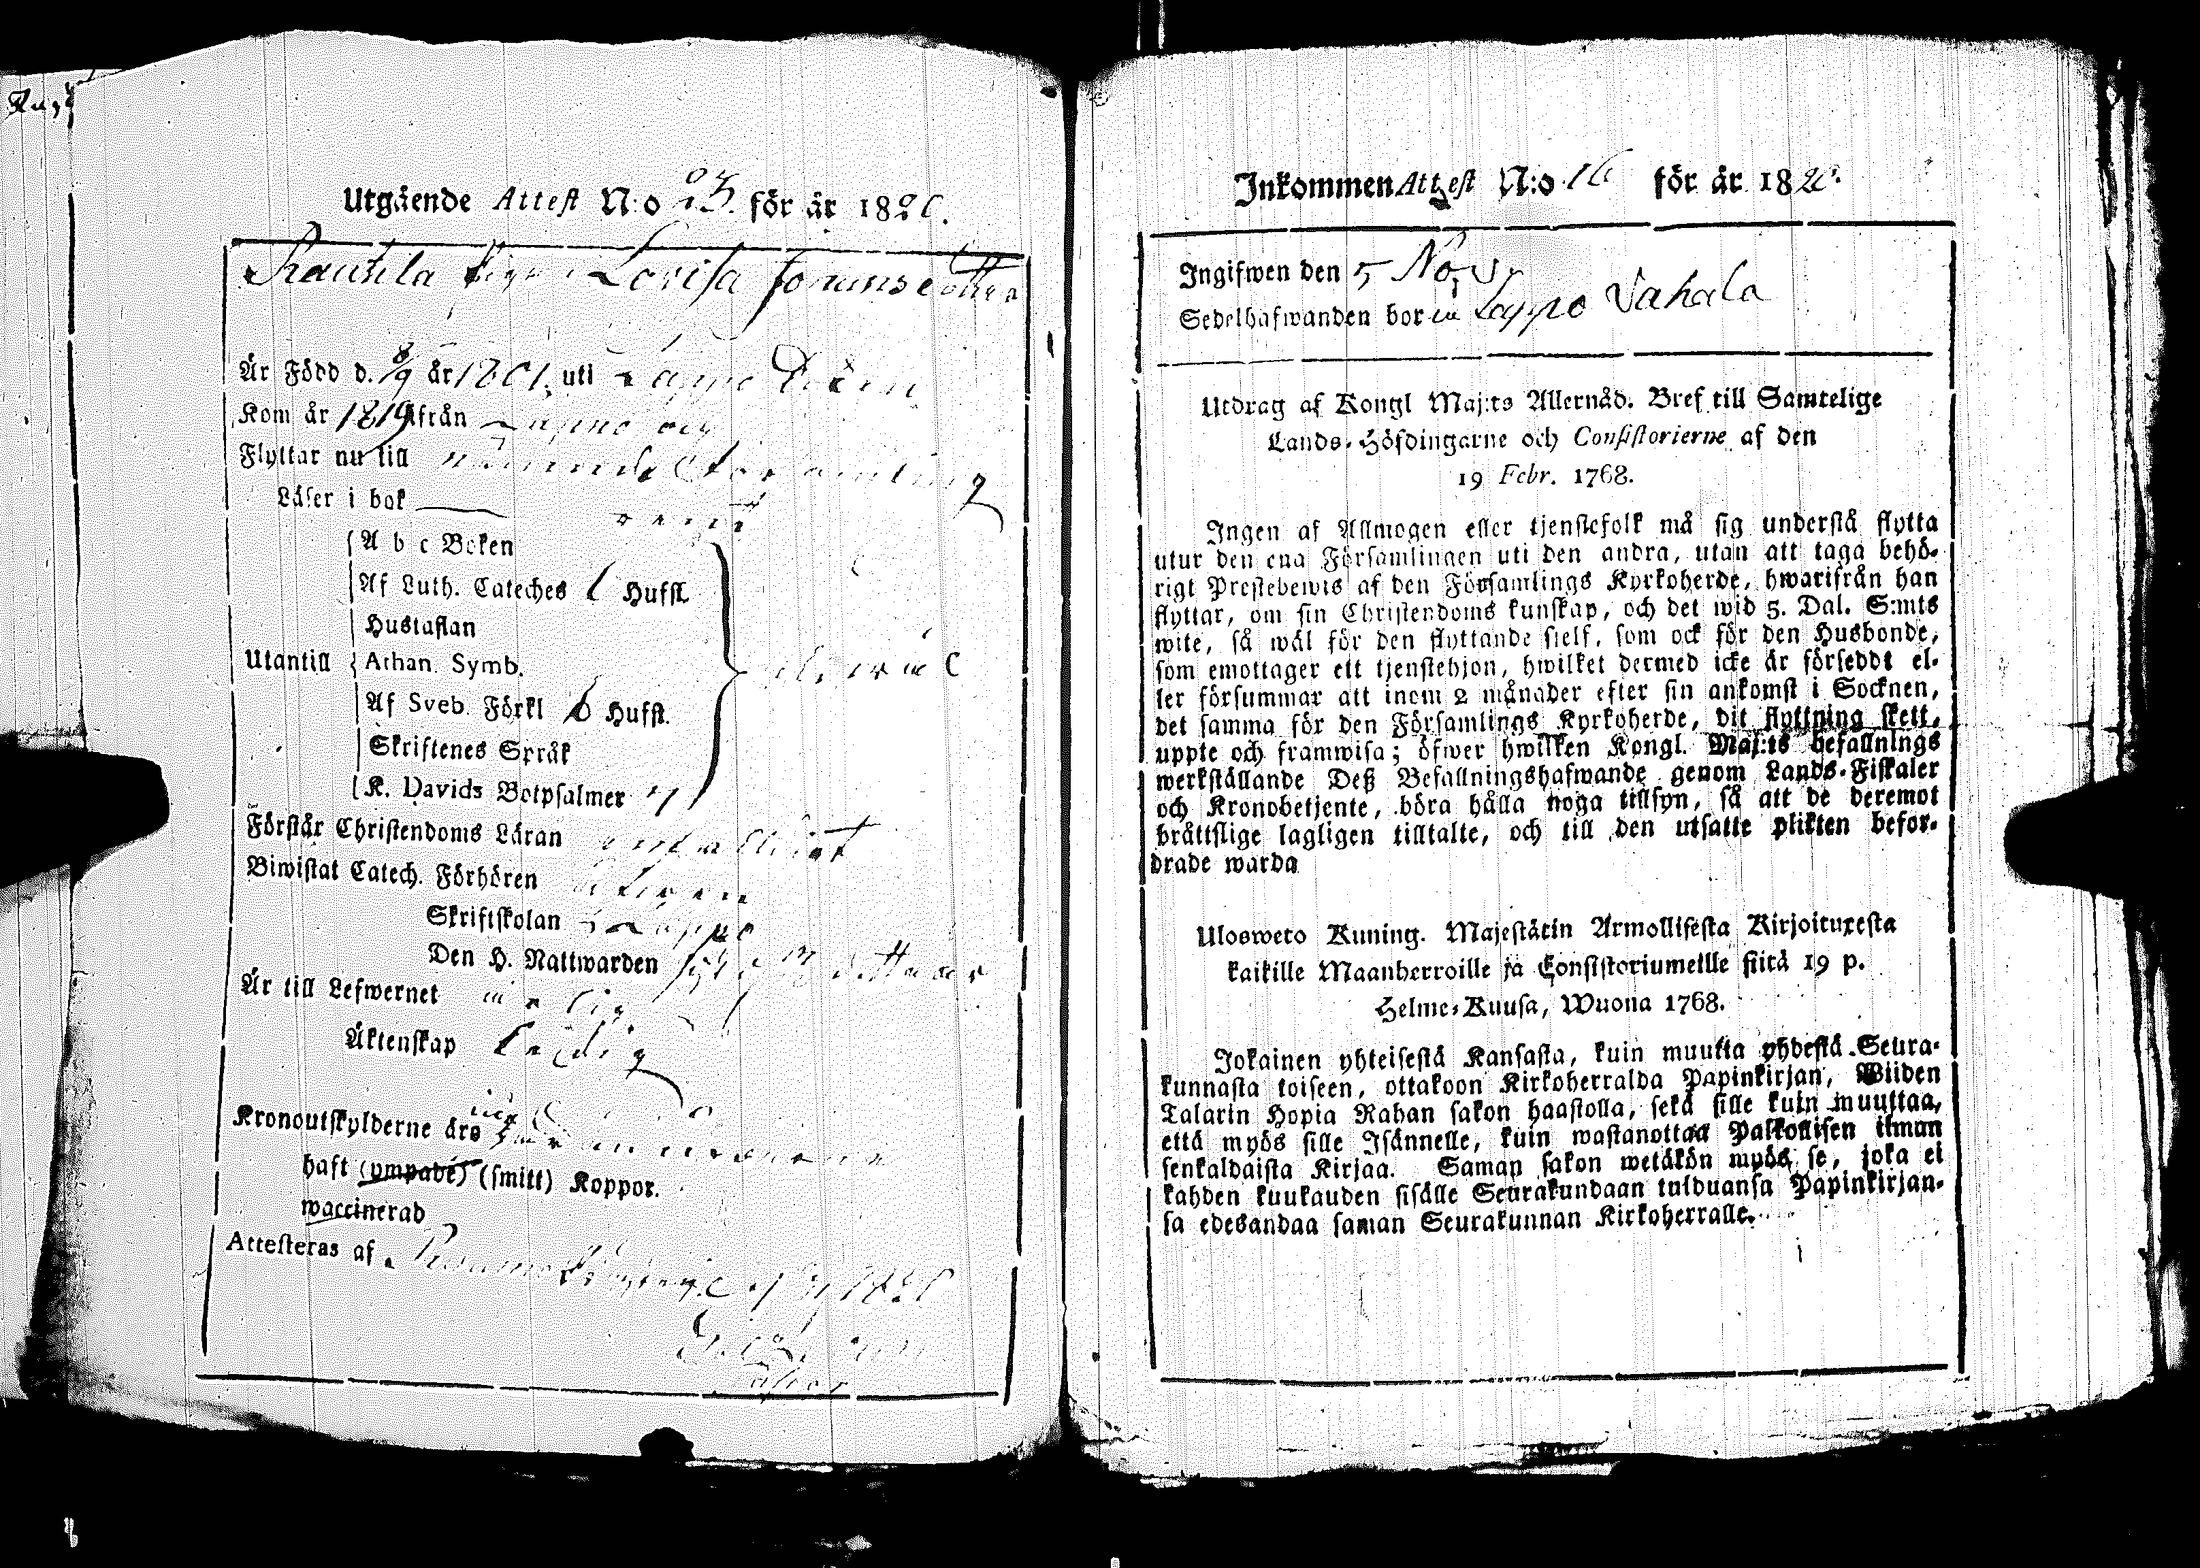 Utgående Attest N:o 23. för år 1820.
Rautila Pigan Lovisa
Är Född d. 8/9 år 1801. uti Lappo
Kom år 1819 ifrån Lappo och
Flyttar nu till
Läser i bok rent
A b c Boken
Af Luth. Cateches Hufst.
Hustaflan
Utantill Athan. Symb.
Af Sveb. Förkl 6 Hufst.
Skriftenes Språk
K. Davids Botpsalmer 7
Förstår Christendoms Läran
Biwistat Catech. Förhören
Skriftskolan i Lappo
Den H. Nattwarden
Är till Lefwernet
Äktenskap Ledig
Kronoutskylderne äro
haft (ympade) (smitt) Koppor.
waccinerad
Attesteras af
Inkommen Attest N:o 16 för år 1820.
Ingifwen den 5 Nov
Sedelhafwanden bor i Lappo
Utdrag af Kongl Maj:ts Allernåd. Bref till Samtelige
Lands-Höfdingarne och Consistorierne af den
19 Febr. 1768.
Ingen af Allmogen eller tjenstefolk må sig understå flytta
utur den ena Församlingen uti den andra, utan att taga behö-
rigt Prestebewis af den Församlings Kyrkoherde, hwarifrån han
flyttar, om sin Christendoms kunskap, och det wid 5. Dal. S:mts
wite, så wäl för den flyttande sielf, som ock för den Husbonde,
som emottager ett tjenstehjon, hwilket dermed icke är förseddt el-
ler försummar att inom 2 månader efter sin ankomst i Socknen,
det samma för den Församlings Kyrkoherde, dit flyttning skett,
uppte och framwisa; öfwer hwilken Kongl. Maj:ts befallnings
werkställande Deß Befallningshafwande genom Lands-Fiskaler
och Kronobetjente, böra hålla noga tillsyn, så att de deremot
bråttslige lagligen tilltalte, och till den utsatte plikten befor-
drade warda
Ulosweto Kuning. Majestätin Armollisesta Kirjoituxesta
kaikille Maanherroille ja Consistoriumeille siitä 19 p.
Helme-Kuusa, Wuona 1768.
Jokainen yhteisestä Kansasta, kuin muutta yhdestä Seura-
kunnasta toiseen, ottakoon Kirkoherralda Papinkirjan, Wiiden
Talarin Hopia Rahan sakon haastolla, sekä sille kuin muuttaa,
että myös sille Isännelle, kuin wastanottaa Palkollisen ilman
senkaldaista Kirjaa. Saman sakon wetäkön myös se, joka ei
kahden kuukauden sisälle Seurakundaan tulduansa Papinkirjan-
sa edesandaa saman Seurakunnan Kirkoherralle.